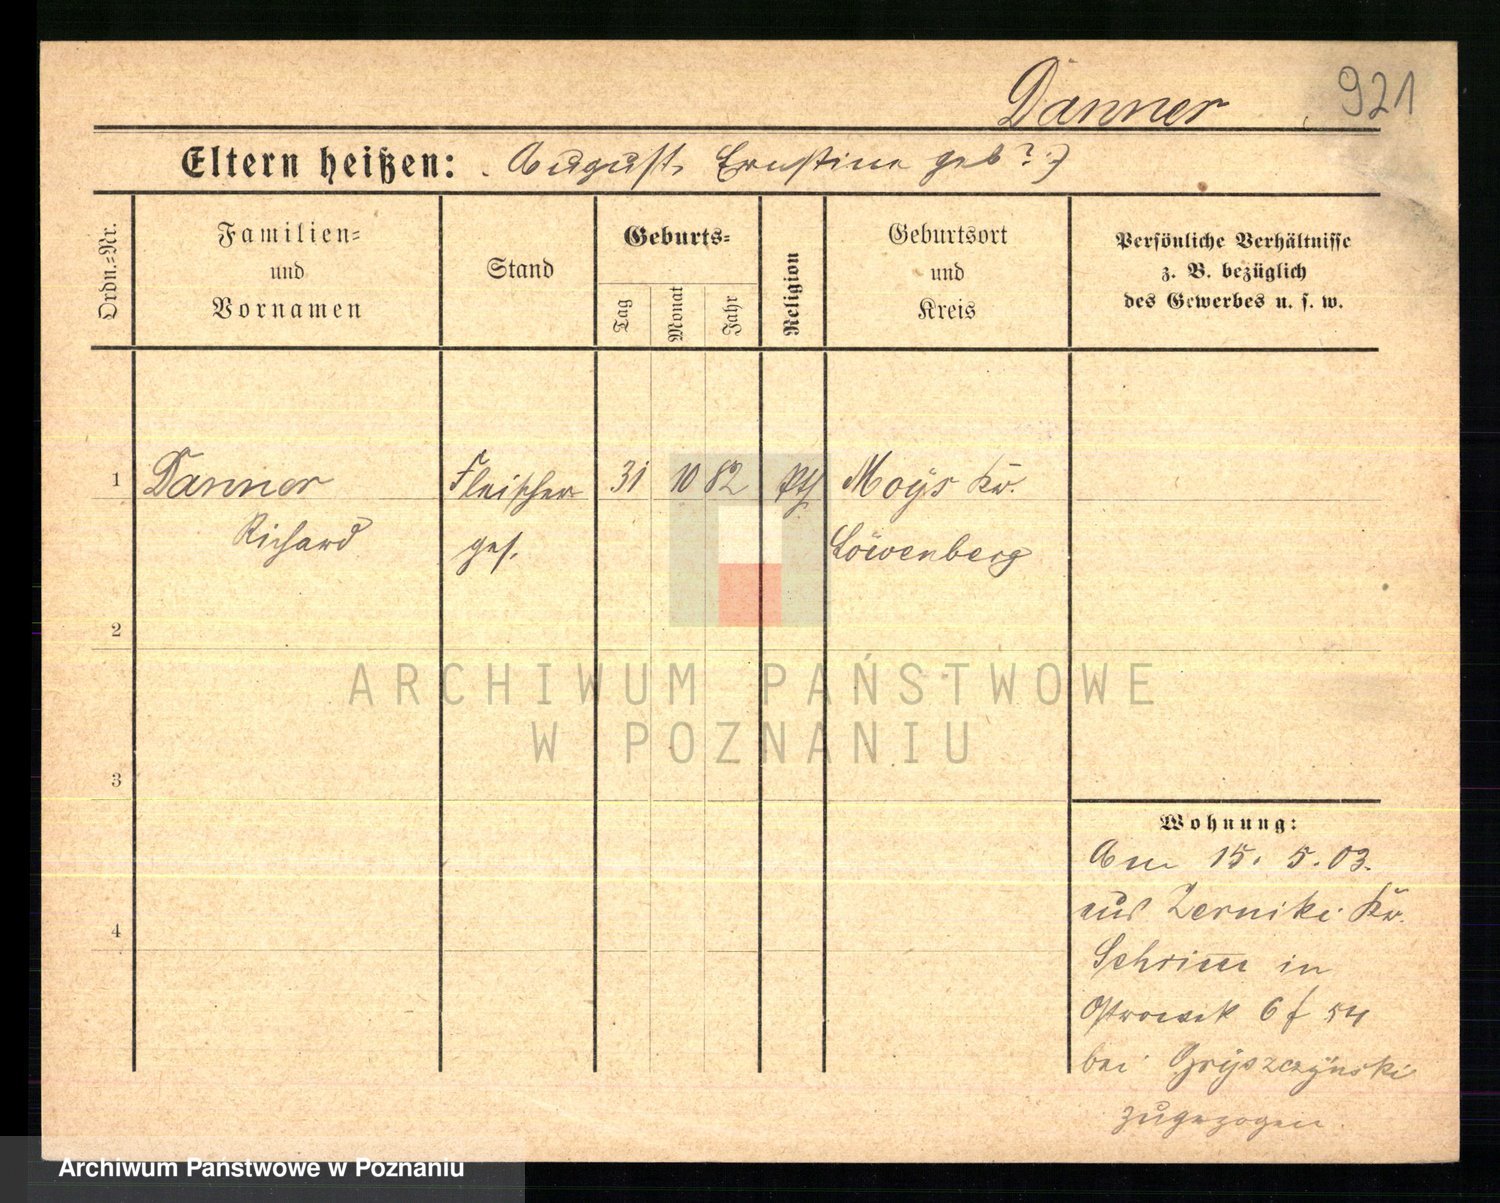 Danner
921
Eltern heißen: August, Ernstine geb ?
Ordn.-Nr.
Familien-
und
Vornamen
Stand
Geburts-
Tag
Monat
Jahr
Religion
Geburtsort
und
Kreis
Persönliche Verhältnisse
z. B. bezüglich
des Gewerbes u. s. w.
1 Danner Fleischer 31 10 82 Moys Kr.
Richard ges. Löwenberg
2
ARCHIWUM PAŃSTWOWE
W POZNANIU
3
4
Wohnung:
Am 15. 5. 03.
aus Zerniki Kr.
Schrimm in
Ostrowek 6 f 54
bei Gryszczyński
zugezogen.
Archiwum Państwowe w Poznaniu